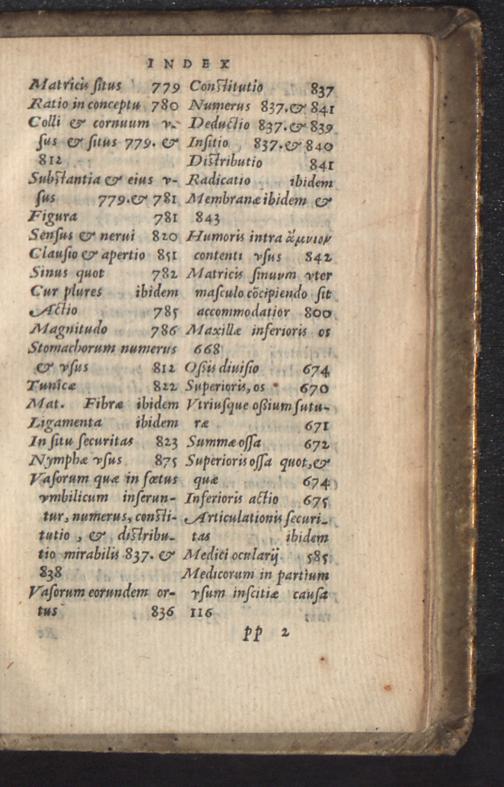 INDEX
Matricis ſitus 779
Ratio in conceptu 780
Colli & cornuum v-
ſus & ſitus 779. &
812
Subſtantia & eius v-
ſus 779.& 781
Figura 781
Senſus & nerui 820
Clauſio & apertio 851
Sinus quot 782
Cur plures ibidem
Actio 785
Magnitudo 786
Stomachorum numerus
& vſus 812
Tunicæ 822
Mat. Fibræ ibidem
Ligamenta ibidem
In ſitu ſecuritas 823
Nymphæ vſus 875
Vaſorum quæ in fœtus
vmbilicum inſerun-
tur, numerus, conſti-
tutio, & diſtribu-
tio mirabilis 837. &
838
Vaſorum eorundem or-
tus 836
Conſtitutio 837
Numerus 837.& 841
Deductio 837.& 839
Inſitio 837.& 840
Diſtributio 841
Radicatio ibidem
Membranæ ibidem &
843
Humoris intra ἄμνιον
contenti vſus 842
Matricis ſinuum vter
maſculo cõcipiendo ſit
accommodatior 800
Maxillæ inferioris os
668
Oſsis diuiſio 674
Superioris, os 670
Vtriuſque oſsium ſutu-
ræ 671
Summæ oſſa 672
Superioris oſſa quot, &
quæ 674
Inferioris actio 675
Articulationis ſecuri-
tas ibidem
Medici ocularij 585
Medicorum in partium
vſum inſcitiæ cauſa
116
pp 2